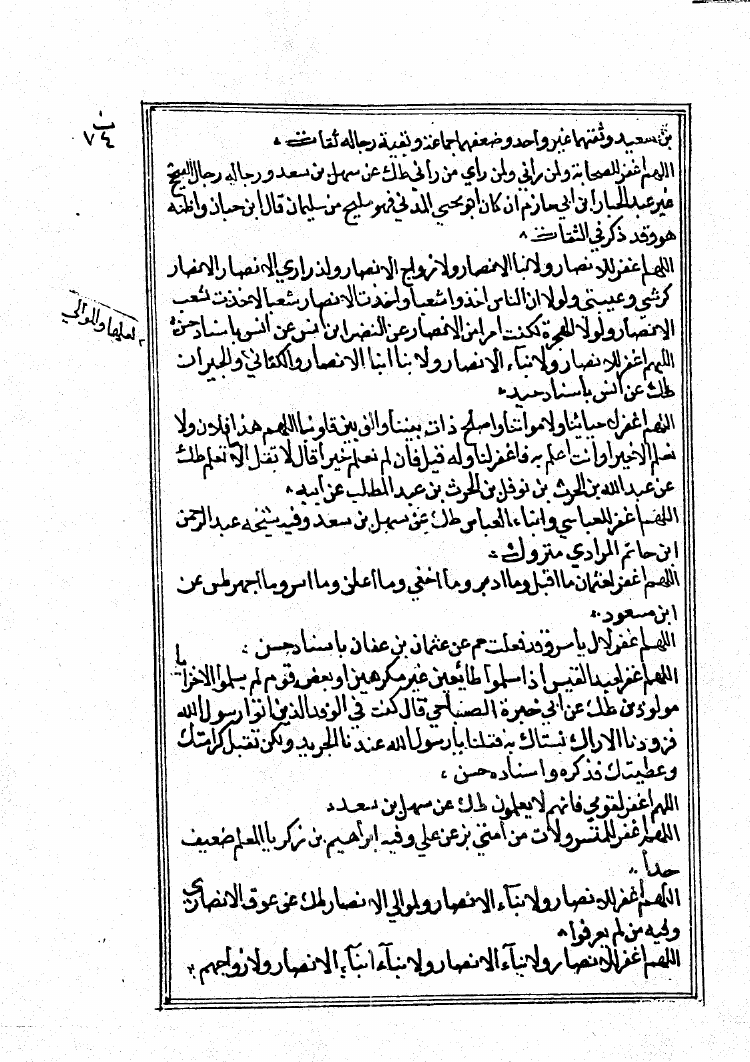 ت
٧٤
بن سعيد وثقتهما غير واحد وضعفهما جماعة وبقية رجاله ثقات
اللهم اغفر للصحابة ولمن راني ولمن راي من راني طك عن سهل بن سعد ورجاله رجال الصحيح
غير عبد الجبار ابن ابي حازم ان كان ابو يحيي المدني فهو مليح من سليمان قال ابن حبان واظنه
هو وقد ذكر في الثقات
اللهم اغفر للانصار ولابنا الانصار ولازواج الانصار ولذراري الانصار الانصار
كرشي وعيبتي ولو ان الناس اخذوا شعبا واخذت الانصار شعبا لاخذت شعب
الانصار ولولا الهجرة لكنت امرا من الانصار عن النضر ابن انس عن انس باسناد حسن
اللهم اغفر للانصار ولابناء الانصار ولابنا ابنا الانصار والكنائن والجيران
طك عن انس باسناد جيد
اللهم اغفر لاحيائنا ولامواتنا واصلح ذات بيننا والف بين قلوبنا اللهم هذا فلان ولا
نعلم الا خيرا وانت اعلم به فاغفر لنا وله قيل فان لم نعلم خيرا قال لا تقل الا ما تعلم طك
عن عبد الله بن الحرث بن نوفل بن الحرث بن عبد المطلب عن ابيه
اللهم اغفر للعباس وابناء العباس طك عن سهل بن سعد وفيه شيخه عبد الرحمن
ابن حاتم المرادي متروك
اللهم اغفر لعثمان ما اقبل وما ادبر وما اخفي وما اعلن وما اسر وما اجهر طس عن
ابن مسعود
اللهم اغفر لال ياسر وقد فعلت حم عن عثمان بن عفان باسناد حسن
اللهم اغفر لعبد القيس اذ اسلموا طائعين غير مكرهين اذ بعض قوم لم يسلموا الا خزايا
موتورين طك عن ابي خيرة الصباحي قال كنت في الوفد الذين اتوا رسول الله
فزودنا الاراك نستاك به فقلنا يا رسول الله عندنا الجريد ولكن نقبل كرامتك
وعطيتك فذكره واسناده حسن
اللهم اغفر لقومي فانهم لا يعلمون طك عن سهل بن سعد
اللهم اغفر للمتسرولات من امتي بز عن علي وفيه ابراهيم بن زكريا المعلم ضعيف
جدا
اللهم اغفر للانصار ولابناء الانصار ولموالي الانصار طك عن عوف الانصاري
وفيه من لم يعرفوا
اللهم اغفر للانصار ولابناء الانصار ولابناء ابناء الانصار ولازواجهم